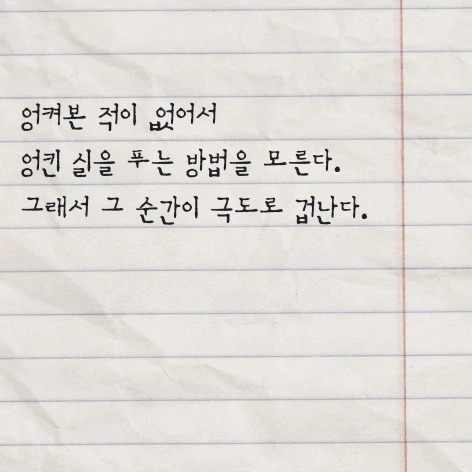 엉켜본 적이 없어서
엉킨 실을 푸는 방법을 모른다.
그래서 그 순간이 극도로 겁난다.